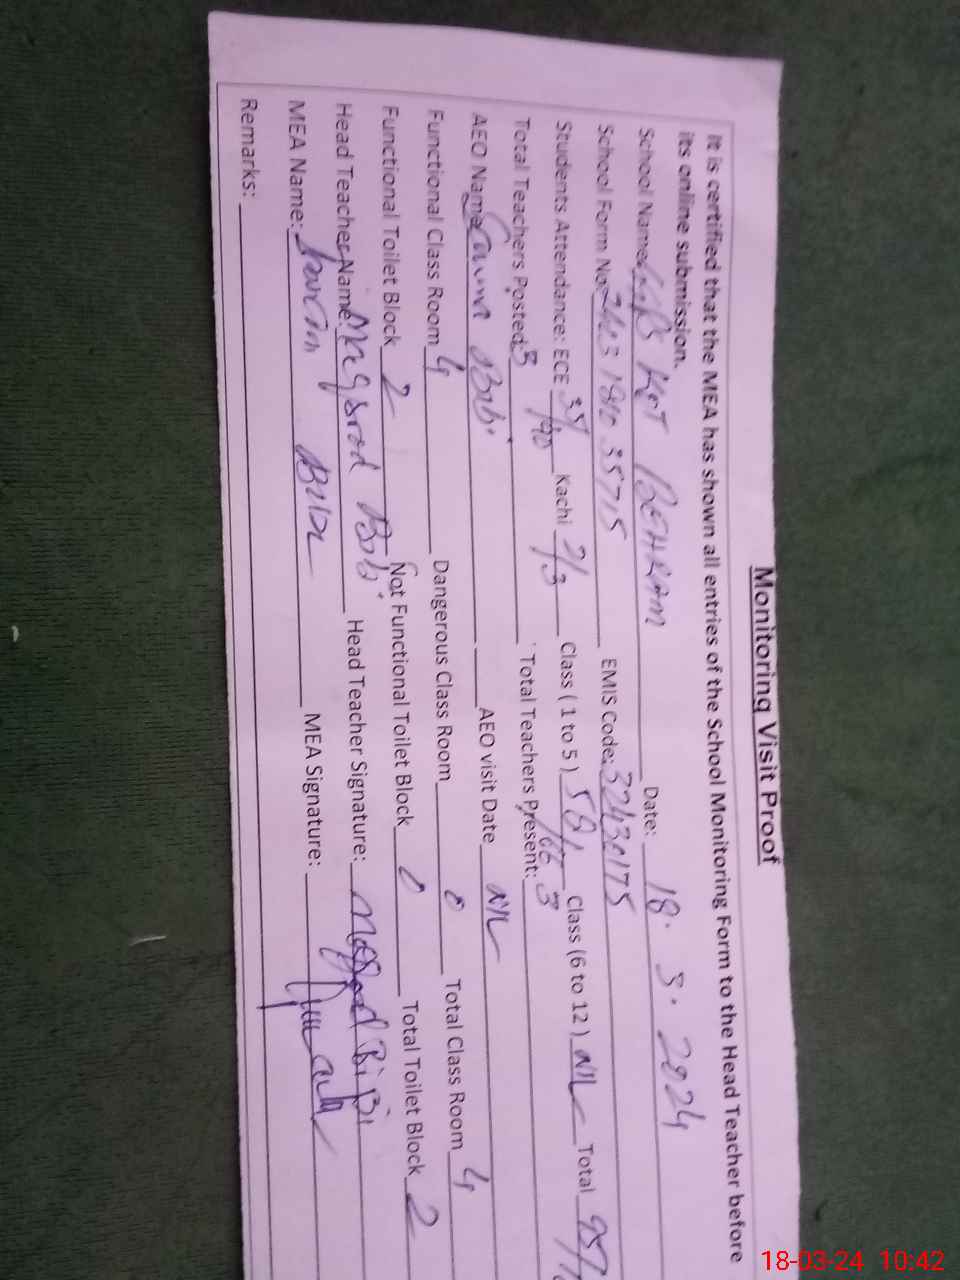 Monitoring Visit Proof
It is certified that the MEA has shown all entries of the School Monitoring Form to the Head Teacher before
its online submission.
School Name: KOT BEHRAM Date: 18. 3. 2024
School Form No: EMIS Code: 32430175
Students Attendance: ECE 35/40 Kachi 2/3 Class ( 1 to 5 ) 58/66 Class (6 to 12 ) NIL Total 95/
Total Teachers Posted: 3 Total Teachers Present: 3
AEO Name Bibi AEO visit Date NIL
Functional Class Room 4 Dangerous Class Room 0 Total Class Room 4
Functional Toilet Block 2 Not Functional Toilet Block 0 Total Toilet Block 2
Head Teacher Name: Maqsood Bibi Head Teacher Signature: Maqsood BiBi
MEA Name: MEA Signature:
Remarks:
18-03-24 10:42